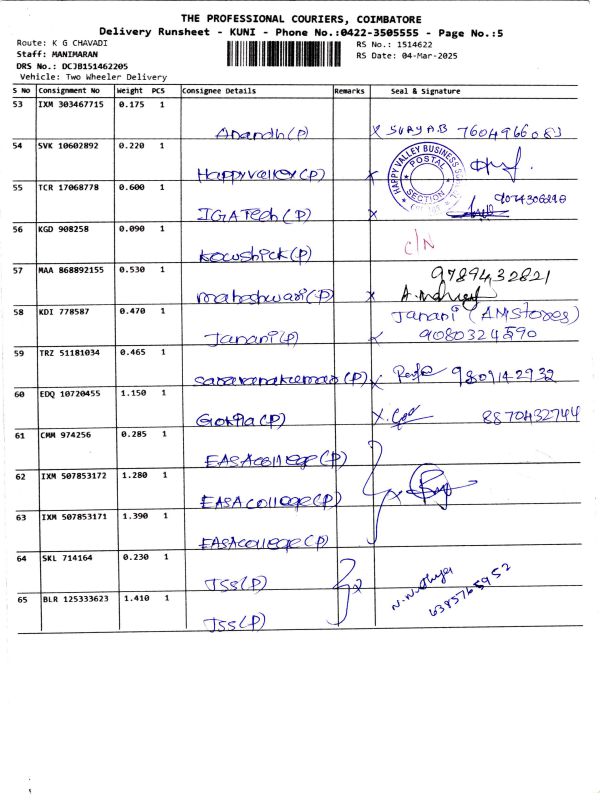 THE PROFESSIONAL COURIERS, COIMBATORE
Delivery Runsheet - KUNI - Phone No.:0422-3505555 - Page No.:5
Route: K G CHAVADI
RS No.: 1514622
Staff: MANIMARAN
RS Date: 04-Mar-2025
DRS No.: DCJB151462205
Vehicle: Two Wheeler Delivery
S No Consignment No Weight PCS Consignee Details Remarks Seal & Signature
53 IXM 303467715 0.175 1
Anandh(P) x SURYA.B
54 SVK 10602892 0.220 1
HAPPY VALLEY BUSINESS
POSTAL
SECTION
Happyvalley(P) x
55 TCR 17068778 0.600 1
IGATech(P) x
56 KGD 908258 0.090 1
c/N
Kowshick(P)
57 MAA 868892155 0.530 1
9789432821
maheshwari(P) x
58 KDI 778587 0.470 1
Janani (AMStores)
Janani(P) x 9080324590
59 TRZ 51181034 0.465 1
Saravanakumar(P) x 9809142932
60 EDQ 10720455 1.150 1
Gokila(P) x 8870432744
61 CMM 974256 0.285 1
EASAcollege(P)
62 IXM 507853172 1.280 1
EASAcollege(P) x
63 IXM 507853171 1.390 1
EASAcollege(P)
64 SKL 714164 0.230 1
JSS(P) x
65 BLR 125333623 1.410 1
6385765952
JSS(P)